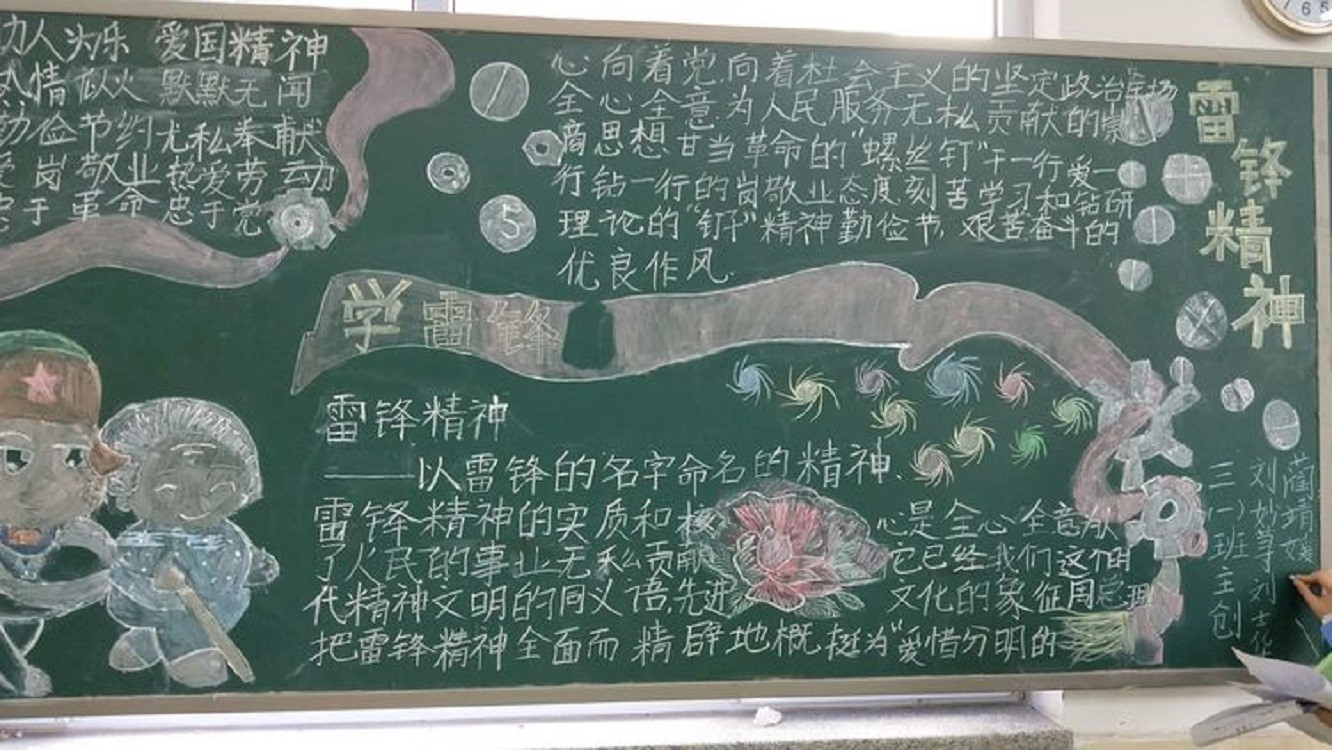 力人为乐 爱国精神
情似火 默默无闻
俭节约 尤私奉献
岗敬业 热爱劳动
于革命 忠于党
心向着党,向着社会主义的坚定政治立场
全心全意为人民服务无私贡献的崇
商思想甘当革命的“螺丝钉”干一行爱一
行钻一行的岗敬业态度刻苦学习和钻研
理论的“钉子”精神勤俭节,艰苦奋斗的
优良作风.
雷锋精神
学雷锋
5
雷锋精神
——以雷锋的名字命名的精神.
雷锋精神的实质和核心是全心全意
了人民的事业无私贡献它已经我们这个
代精神文明的同义语,先进文化的象征周总理
把雷锋精神全面而精辟地概挺为“爱惜分明的
三(一)班主创
刘妙 刘士华
靖
6 5